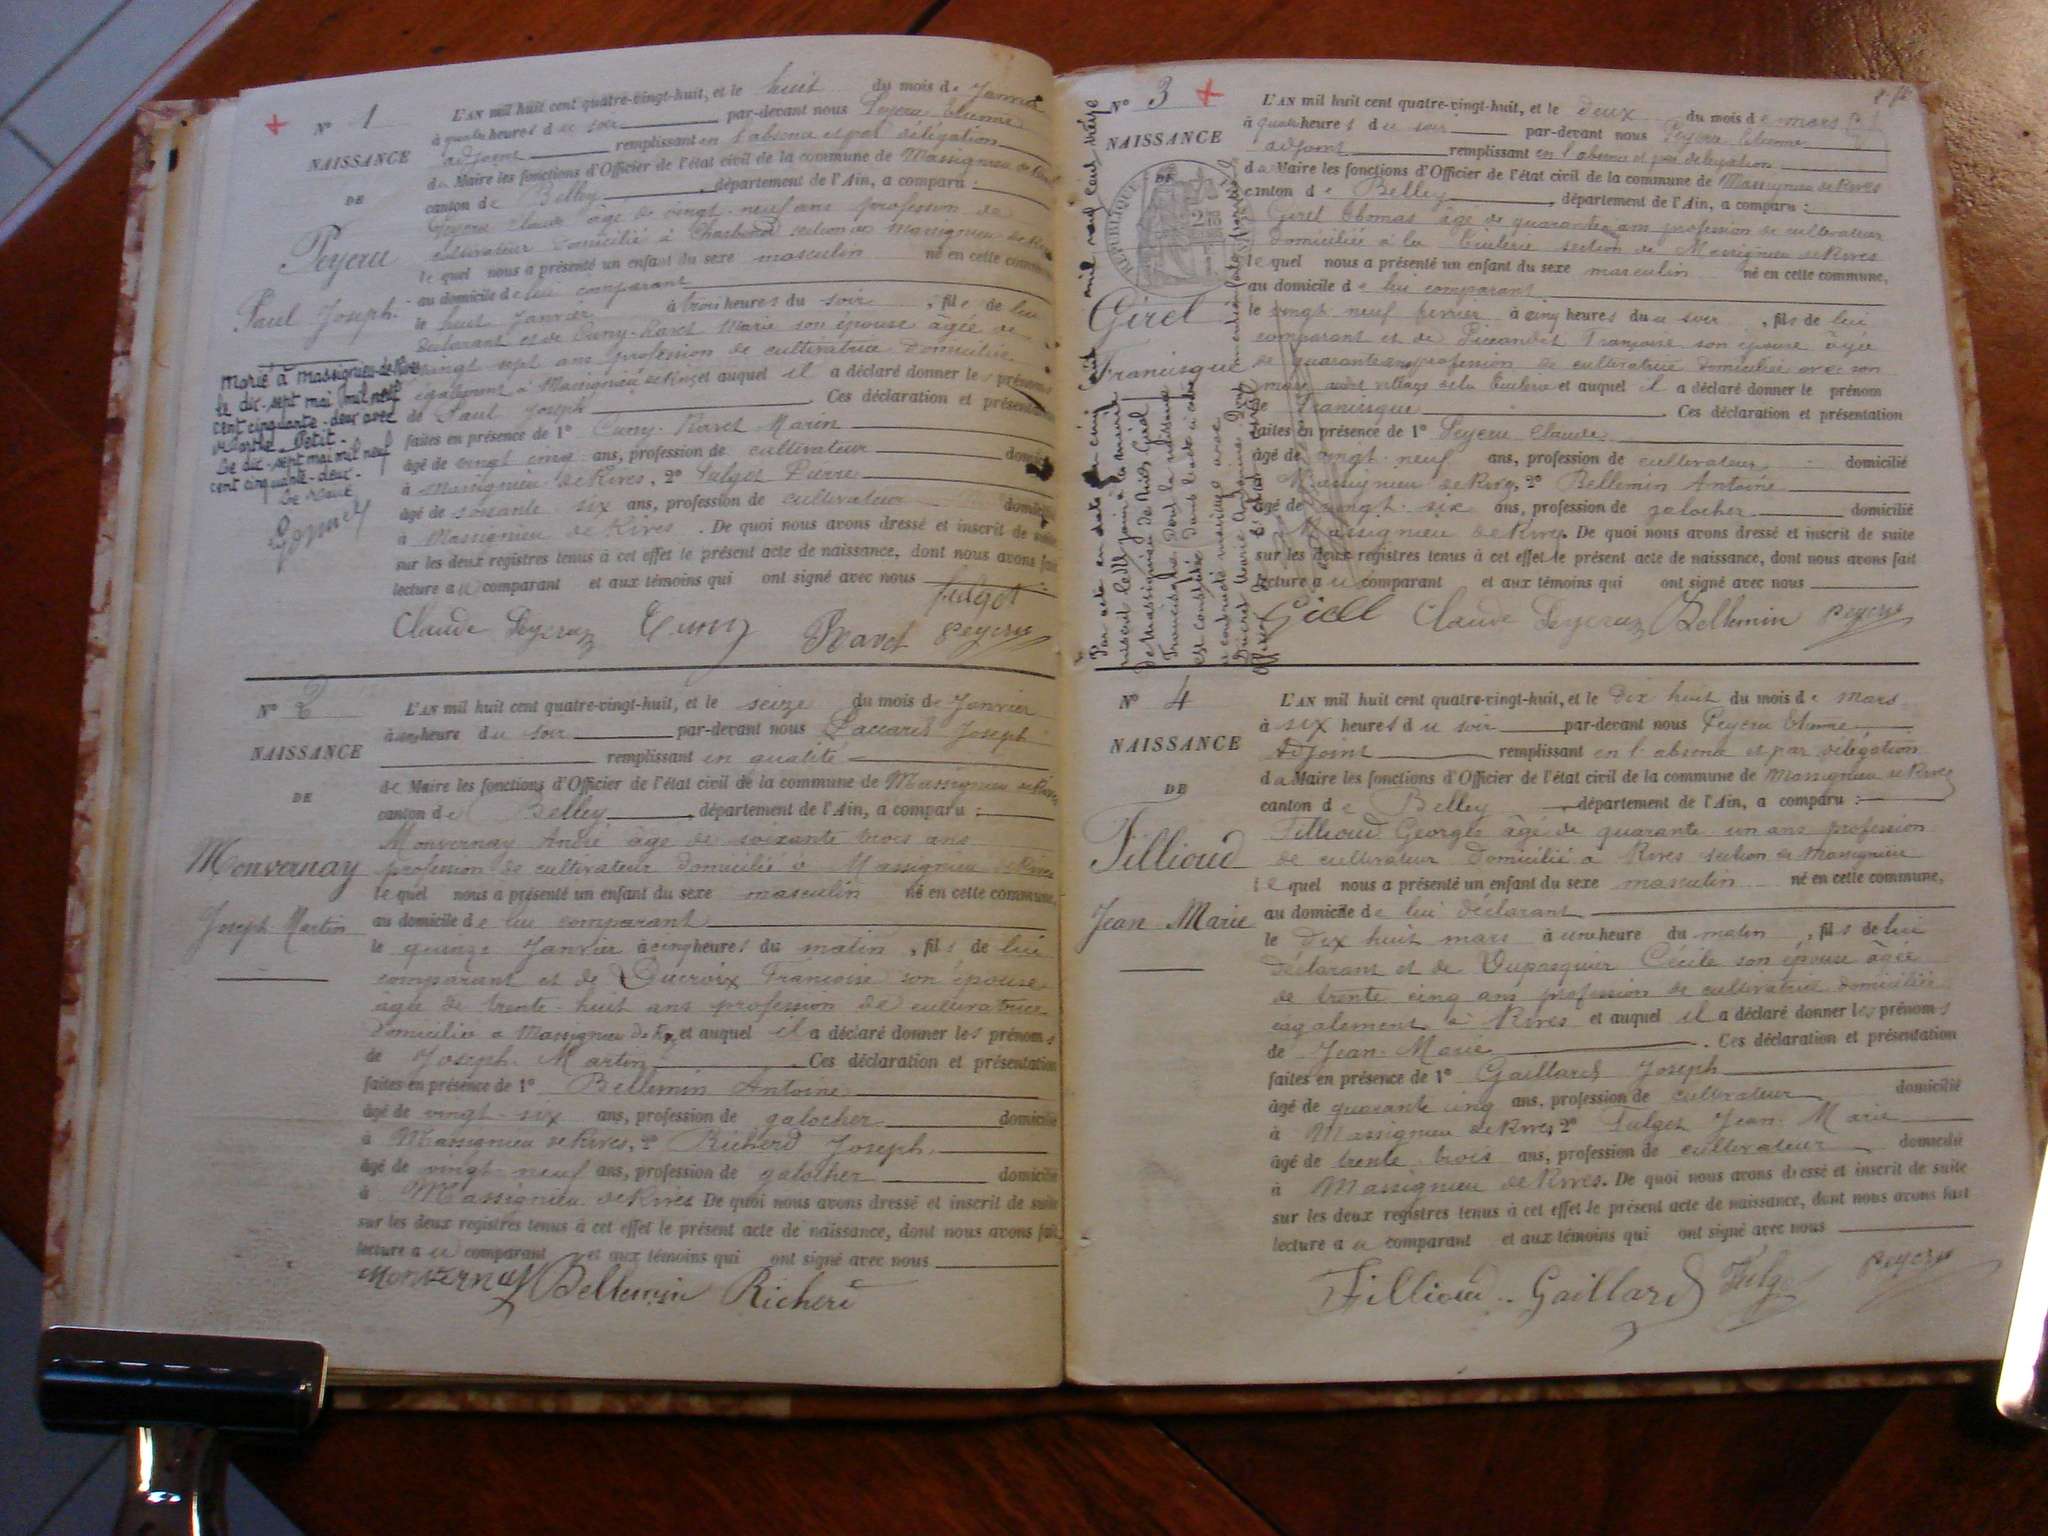 N° 1
NAISSANCE
DE
Peyeru
Paul Joseph
Marié à Massignieu-de-Rives
le dix-sept mai mil neuf
cent cinquante-deux avec
Marthe Petit.
Le dix-sept mai mil neuf
cent cinquante-deux.
Le Maire
L'AN mil huit cent quatre-vingt-huit, et le huit du mois de Janvier
à quatre heures du soir par-devant nous Peyeru Etienne
adjoint remplissant en l'absence et par délégation
du Maire les fonctions d'Officier de l'état civil de la commune de Massignieu de Rives
canton de Belley, département de l'Ain, a comparu :
Peyeru Claude âgé de vingt-neuf ans profession de
cultivateur domicilié à section de Massignieu de Rives
lequel nous a présenté un enfant du sexe masculin né en cette commune,
au domicile de lui comparant
le huit Janvier à trois heures du soir, fils de lui
déclarant et de Cuny-Ravet Marie son épouse âgée de
vingt sept ans profession de cultivatrice domiciliée
également à Massignieu de Rives et auquel il a déclaré donner les prénoms
de Paul Joseph. Ces déclaration et présentation
faites en présence de 1° Cuny-Ravet Marin
âgé de vingt ans, profession de cultivateur domicilié
à Massignieu de Rives, 2° Fulget Pierre
âgé de soixante six ans, profession de cultivateur domicilié
à Massignieu de Rives. De quoi nous avons dressé et inscrit de suite
sur les deux registres tenus à cet effet le présent acte de naissance, dont nous avons fait
lecture au comparant et aux témoins qui ont signé avec nous
Fulget
Claude Peyeru Cuny Ravet Peyeru
N° 2
NAISSANCE
DE
Monvernay
Joseph Martin
L'AN mil huit cent quatre-vingt-huit, et le seize du mois de Janvier
à une heure du soir par-devant nous Paccard Joseph
remplissant en qualité
de Maire les fonctions d'Officier de l'état civil de la commune de Massignieu de Rives
canton de Belley, département de l'Ain, a comparu :
Monvernay André âgé de soixante trois ans
profession de cultivateur domicilié à Massignieu de Rives
lequel nous a présenté un enfant du sexe masculin né en cette commune,
au domicile de lui comparant
le quinze Janvier à cinq heures du matin, fils de lui
comparant et de Ducroix Françoise son épouse
âgée de trente-huit ans profession de cultivatrice
domiciliée à Massignieu de Rives et auquel il a déclaré donner les prénoms
de Joseph Martin. Ces déclaration et présentation
faites en présence de 1° Bellemin Antoine
âgé de vingt-six ans, profession de galocher domicilié
à Massignieu de Rives, 2° Richerd Joseph
âgé de vingt-neuf ans, profession de galocher domicilié
à Massignieu de Rives. De quoi nous avons dressé et inscrit de suite
sur les deux registres tenus à cet effet le présent acte de naissance, dont nous avons fait
lecture au comparant et aux témoins qui ont signé avec nous
Monvernay Bellemin Richerd
N° 3
NAISSANCE
DE
RÉPUBLIQUE
Girel
Francisque
L'AN mil huit cent quatre-vingt-huit, et le deux du mois de mars
à quatre heures du soir par-devant nous Peyeru Etienne
adjoint remplissant en l'absence et par délégation
du Maire les fonctions d'Officier de l'état civil de la commune de Massignieu de Rives
canton de Belley, département de l'Ain, a comparu :
Girel Thomas âgé de quarante ans profession de cultivateur
domicilié à la section de Massignieu de Rives
lequel nous a présenté un enfant du sexe masculin né en cette commune,
au domicile de lui comparant
le vingt-neuf février à cinq heures du soir, fils de lui
comparant et de Françoise son épouse âgée
de quarante ans profession de cultivatrice domiciliée avec son
mari et auquel il a déclaré donner le prénom
de Francisque. Ces déclaration et présentation
faites en présence de 1° Peyeru Claude
âgé de vingt-neuf ans, profession de cultivateur domicilié
à Massignieu de Rives, 2° Bellemin Antoine
âgé de vingt-six ans, profession de galocher domicilié
à Massignieu de Rives. De quoi nous avons dressé et inscrit de suite
sur les deux registres tenus à cet effet le présent acte de naissance, dont nous avons fait
lecture au comparant et aux témoins qui ont signé avec nous
Girel Claude Peyeru Bellemin Peyeru
N° 4
NAISSANCE
DE
Fillioud
Jean Marie
L'AN mil huit cent quatre-vingt-huit, et le dix huit du mois de mars
à six heures du soir par-devant nous Peyeru Etienne
Adjoint remplissant en l'absence et par délégation
du Maire les fonctions d'Officier de l'état civil de la commune de Massignieu de Rives
canton de Belley, département de l'Ain, a comparu :
Fillioud Georges âgé de quarante-un ans profession
de cultivateur domicilié à Rives section de Massignieu
lequel nous a présenté un enfant du sexe masculin né en cette commune,
au domicile de lui déclarant
le dix huit mars à une heure du matin, fils de lui
déclarant et de Dupasquier Cécile son épouse âgée
de trente cinq ans profession de cultivatrice domiciliée
également à Rives et auquel il a déclaré donner les prénoms
de Jean-Marie. Ces déclaration et présentation
faites en présence de 1° Gaillard Joseph
âgé de quarante cinq ans, profession de cultivateur domicilié
à Massignieu de Rives 2° Fulget Jean Marie
âgé de trente-trois ans, profession de cultivateur domicilié
à Massignieu de Rives. De quoi nous avons dressé et inscrit de suite
sur les deux registres tenus à cet effet le présent acte de naissance, dont nous avons fait
lecture au comparant et aux témoins qui ont signé avec nous
Fillioud Gaillard Fulget Peyeru